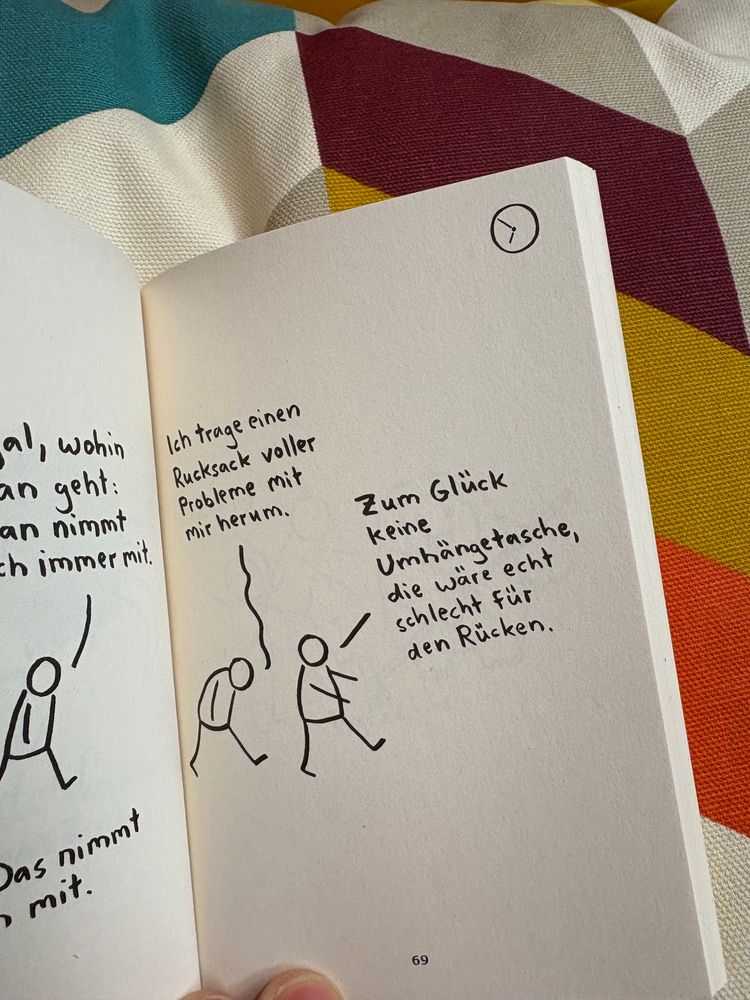 wohin
geht:
nimmt
immer mit.
Das nimmt
mit.
Ich trage einen
Rucksack voller
Probleme mit
mir herum.
Zum Glück
keine
Umhängetasche,
die wäre echt
schlecht für
den Rücken.
69